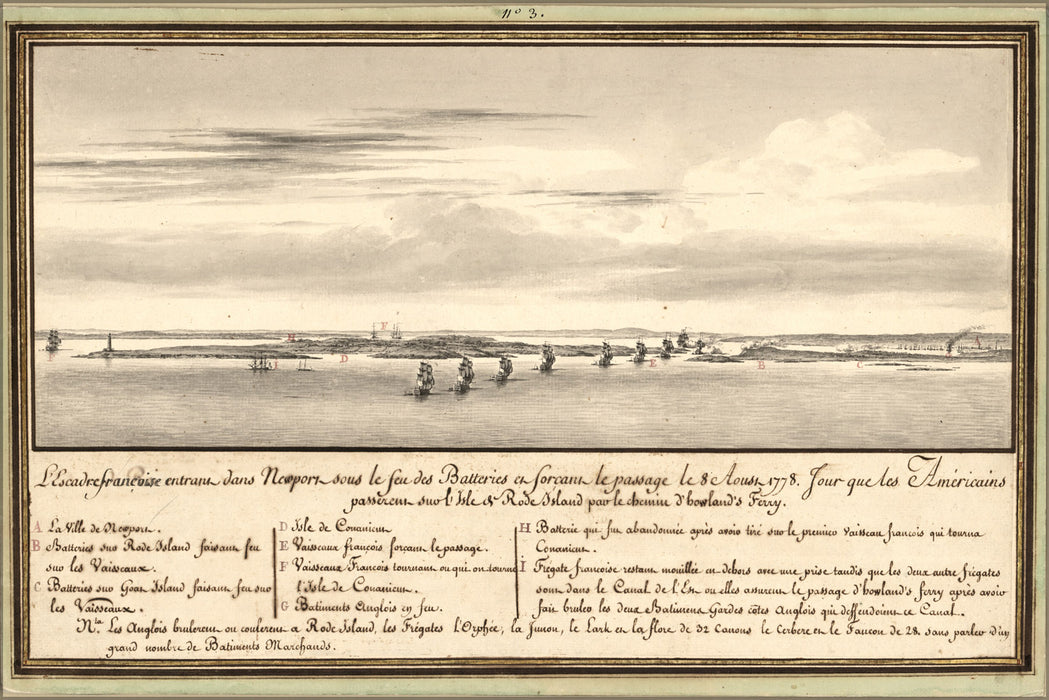 nº 3.
H
F
I
D
E
B
C
A
L'Escadre françoise entrant dans Newport sous le feu des Batteries et forcant le passage le 8 Aoust 1778. Jour que les Américains
passerent sur l'Isle de Rode Island par le chemin d'howland's Ferry.
A La Ville de Newport.
B Batteries sur Rode Island faisant feu
sur les Vaisseaux.
C Batteries sur Goat Island faisant feu sur
les Vaisseaux.
D Isle de Conanicut
E Vaisseaux françois forçant le passage.
F Vaisseaux François tournant ou qui ont tourné
l'Isle de Conanicut.
G Batiments Anglois en feu.
H Batterie qui fut abandonnée après avoir tiré sur le premier vaisseau francois qui tourna
Conanicut.
I Frégate francoise restant mouillée en dehors avec une prise tandis que les deux autre frégates
sont dans le Canal de l'Est ou elles assurent le passage d'howland's ferry après avoir
fait bruler les deux Batimens Gardes côtes Anglois qui deffendoient ce Canal.
Nta Les Anglois brulerent ou coulerent a Rode Island, les Frégates l'Orphée, la Junon, le Lark et la flore de 32 Canons le Cerbere et le Faucon de 28. sans parler d'un
grand nombre de Batiments Marchands.